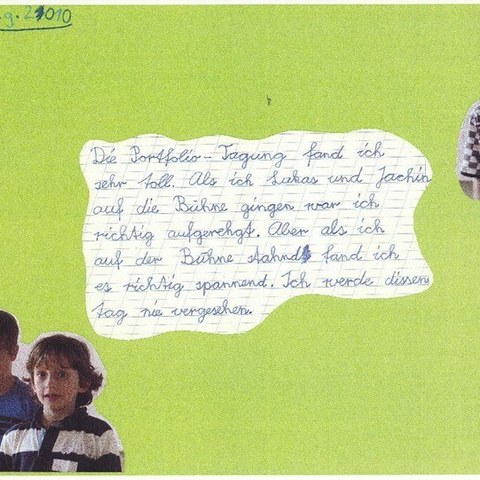 .g.2010
Die Portfolio-Tagung fand ich
sehr toll. Als ich Lukas und Jachin
auf die Bühne gingen war ich
richtig aufgerehgt. Aber als ich
auf der Bühne stahnd fand ich
es richtig spannend. Ich werde dissen
tag nie vergesehen.